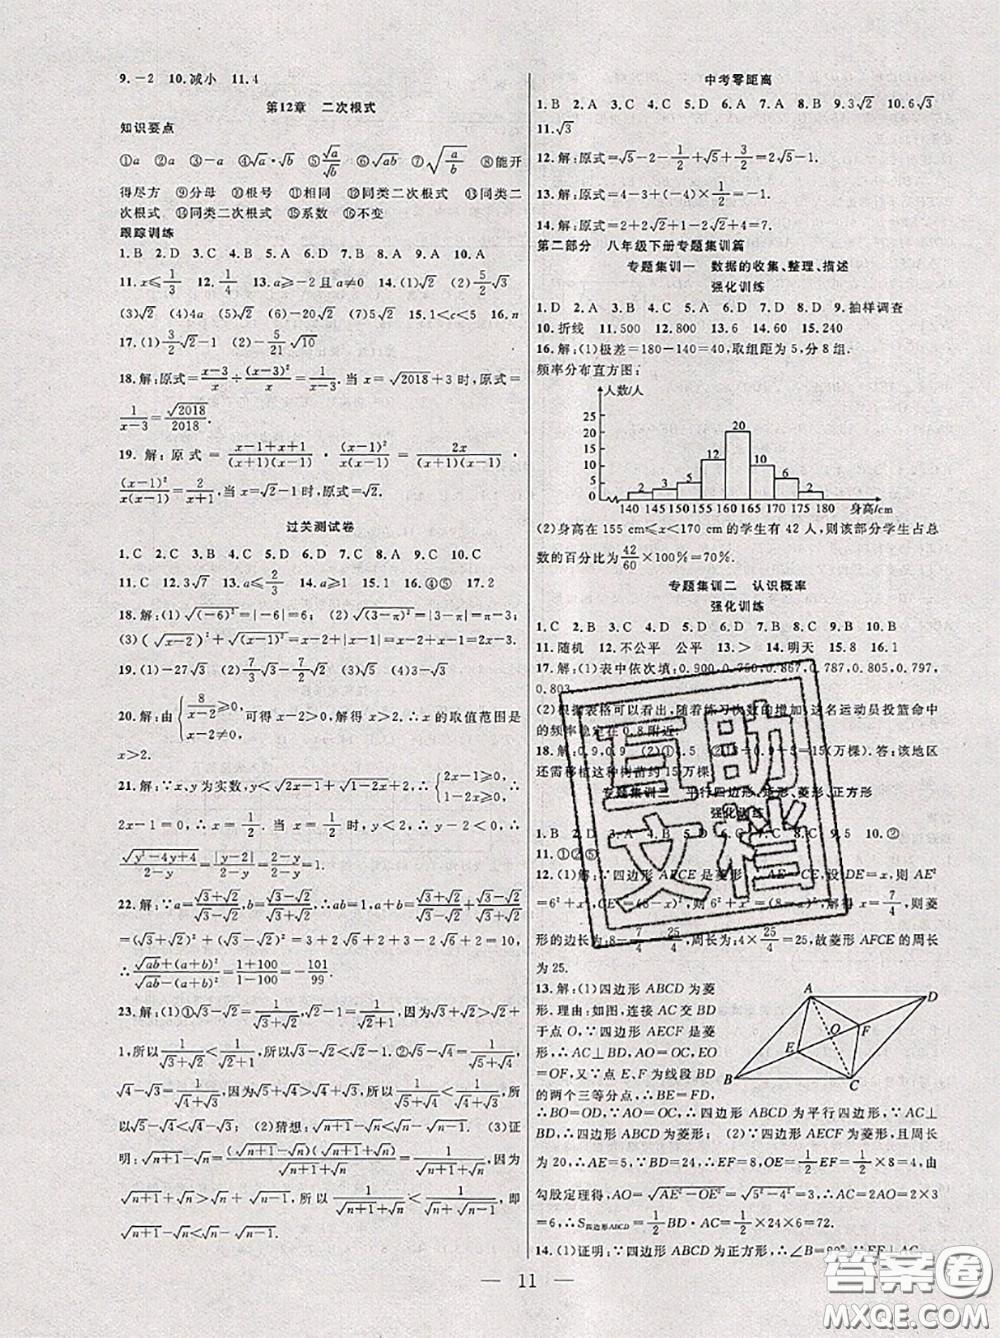 9.－2 10.减小 11.4
第12章 二次根式
知识要点
①a ②a ③－a ④√a·√b ⑤√a/√b ⑥√ab ⑦√(a/b) ⑧能开
得尽方 ⑨分母 ⑩根号 ⑪相同 ⑫同类二次根式 ⑬同类二
次根式 ⑭同类二次根式 ⑮系数 ⑯不变
跟踪训练
1.B 2.D 3.C 4.D 5.C 6.D 7.B 8.A 9.A 10.A
11.x≤1/3 12.1/4 13.a≥－2且a≠0 14.(1)√2/4 (2)5√2/2
(3)√2 (4)4a (5)2√2 (6)－20√2 (7)5√2 15.1<c<5 16.n
17.(1)3/2√2 (2)－5/21√10
18.解:原式=(x－3)/x÷(x－3)²/x=1/(x－3). 当 x=√2018+3时,原式=
1/(x－3)=√2018/2018.
19.解:原式=(x－1+x+1)/((x+1)(x－1))·(x－1)²/(x(x－1))=2x/((x+1)(x－1))·
(x－1)²/x(x－1)=2/(x+1),当x=√2－1时,原式=√2.
过关测试卷
1.C 2.C 3.B 4.C 5.A 6.C 7.D 8.C 9.C 10.C
11.C 12.3√7 13.a≤2/3 14.>√10 15.1 16.④⑤ 17.2
18.解:(1)√(－6)²=|－6|=6; (2)√(3－π)²=|3－π|=π－3;
(3)(√x－2)²+√(x－1)²=x－2+|x－1|=x－2+x－1=2x－3.
19.(1)－27√3 (2)7/3√3－2/3√30 (3)√3/2 (4)3－√3
20.解:由{8/(x－2)≥0, x－2≠0, 可得x－2>0,解得x>2.∴x的取值范围是
x>2.
21.解:∵x,y为实数,y<√2x－1+√1－2x+2,∴{2x－1≥0, 1－2x≥0,∴
2x－1=0,∴x=1/2.当x=1/2时,y<2,∴y－2<0,∴
√y²－4y+4/(2－y)=|y－2|/(2－y)=(2－y)/(2－y)=1.
22.解:∵a=(√3+√2)/(√3－√2),b=(√3－√2)/(√3+√2),∴ab=1,a+b=(√3+√2)/(√3－√2)+(√3－√2)/(√3+√2)
=(√3+√2)²+(√3－√2)²=3+2√6+2+3－2√6+2=10.
∴(√ab+(a+b)²)/(√ab－(a+b)²)=(1+100)/(1－100)=－101/99.
23.解:(1)①√3－√2=1/(√3+√2),√2－1=1/(√2+1),因为√3+√2>√2+
1,所以1/(√3+√2)<1/(√2+1),所以√3－√2<√2－1.②√5－√4=1/(√5+√4),
√4－√3=1/(√4+√3),因为√5+√4>√4+√3,所以1/(√5+√4)<1/(√4+√3),所以
√5－√4<√4－√3. (2)猜想:√n+1－√n<√n－√n－1. (3)证
明:√n+1－√n=(√n+1－√n)(√n+1+√n)/(√n+1+√n)=1/(√n+1+√n),因为
√n+1+√n>√n+√n－1,所以1/(√n+1+√n)<1/(√n+√n－1),即
√n+1－√n<√n－√n－1.
中考零距离
1.B 2.A 3.C 4.B 5.D 6.B 7.B 8.B 9.3√2 10.6√3
11.√3
12.解:原式=√5－2－1/2+√5+3/2=2√5－1.
13.解:原式=4－3+(－4)×1/2=－1.
14.解:原式=2+2√2+1－2√2+4=7.
第二部分 八年级下册专题集训篇
专题集训一 数据的收集、整理、描述
强化训练
1.D 2.A 3.C 4.B 5.D 6.A 7.D 8.D 9.抽样调查
10.折线 11.500 12.800 13.6 14.60 15.240
16.解:(1)极差=180－140=40,取组距为5,分8组.
频率分布直方图:
人数/人
25
20
15
10
5
0
2 3 6 12 20 10 5 2
140 145 150 155 160 165 170 175 180 身高/cm
(2)身高在155 cm≤x<170 cm的学生有42人,则该部分学生占总
数的百分比为42/60×100%=70%.
专题集训二 认识概率
强化训练
1.C 2.B 3.B 4.B 5.D 6.D 7.D 8.C 9.B 10.B
11.随机 12.不公平 公平 13.> 14.明天 15.8 16.1
17.解:(1)表中依次填:0.900,0.750,0.867,0.787,0.805,0.797,
0.803.
(2)根据表格可以看出,随着练习次数的增加,这名运动员投篮命中
的频率稳定在0.8附近.
18.解:0.9,0.9 (2)①4.5 ②15(万棵).答:该地区
还需移植这种树苗约15万棵.
专题集训三 平行四边形、矩形、菱形、正方形
强化训练
1.B 2.D 3.A 4.C 5.D 6.C 7.C 8.C 9.5 10.②
11.①②⑤
12.(1)解:∵四边形AECF是菱形,∴AE=CE,设DE=x,则AE²
=6²+x²,CE=(8－x),则6²+x²=(8－x)²,解得x=7/4,则菱
形的边长为:8－7/4=25/4,周长为:4×25/4=25,故菱形AFCE的周长
为25.
13.解:(1)四边形ABCD为菱
形.理由:如图,连接AC交BD
于点O,∵四边形AECF是菱
形,∴AC⊥BD,AO=OC,EO
=OF.又∵点E、F为线段BD
的两个三等分点,∴BE=FD,
A D O F E B C
∴BO=OD,∵AO=OC,∴四边形ABCD为平行四边形,∵AC⊥
BD,∴四边形ABCD为菱形; (2)∵四边形AECF为菱形,且周长
为20,∴AE=5,∵BD=24,∴EF=8,OE=1/2EF=1/2×8=4,由
勾股定理得,AO=√AE²－OE²=√5²－4²=3,∴AC=2AO=2×3
=6,∴S四边形ABCD=1/2BD·AC=1/2×24×6=72.
14.(1)证明:∵四边形ABCD为正方形,∴∠B=90°,∵EF⊥AC,
11
互助文档
答案圈
MXQE.COM